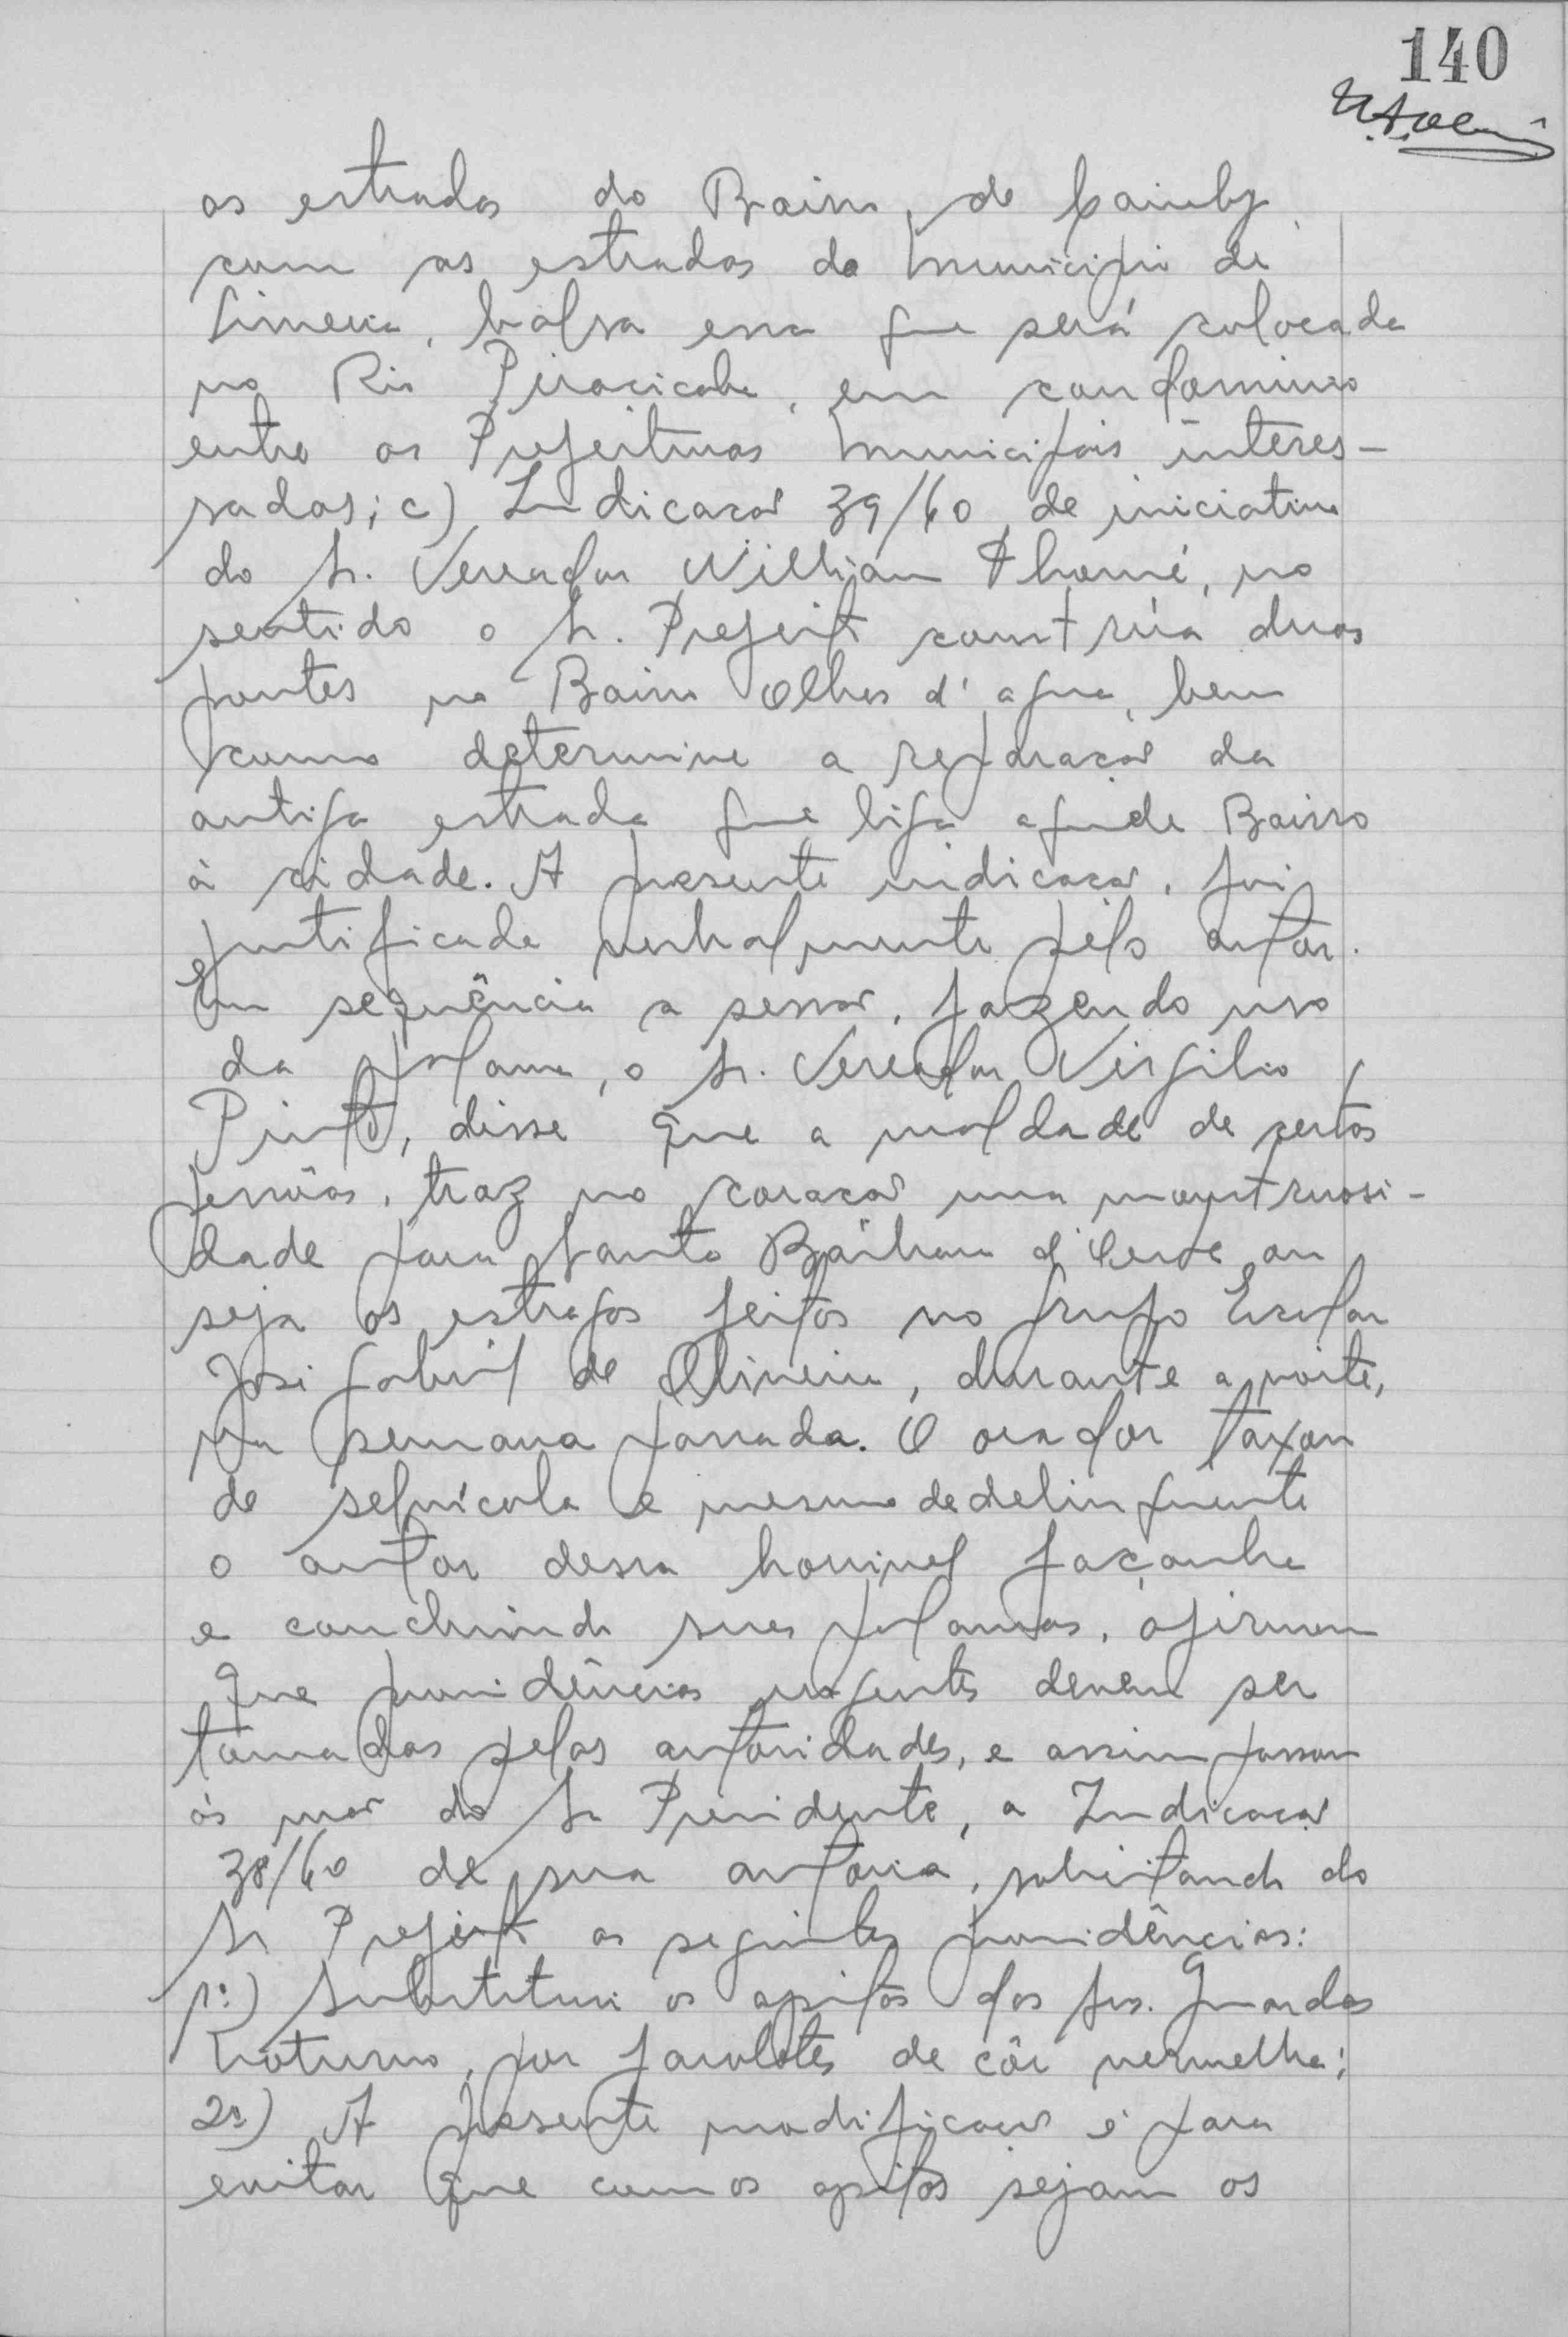 140
as estradas do Bairro de Caiuby
com as estradas do Municipio de
Limeira, balsa essa que será colocada
no Rio Piracicaba, em condominio
entre as Prefeituras Municipais interes-
sadas; c) Indicação 39/60, de iniciativa
do Sr. Vereador Willian Thomé, no
sentido o Sr. Prefeito construa duas
pontes no Bairro Olhos d'agua, bem
como determine a reparação da
antiga estrada que liga aquele Bairro
à cidade. A presente indicação, foi
justificada verbalmente pelo autor.
Em sequência a sessão, fazendo uso
da palavra, o Sr. Vereador Virgilio
Pinto, disse que a maldade de certas
pessôas, traz no coração uma monstruosi-
dade para Santa Bárbara d'Oeste ou
seja os estragos feitos no Grupo Escolar
José Gabriel de Oliveira, durante a noite,
na semana passada. O orador taxou
de selvícola e mesmo de delinquente
o autor dessa horrivel façanha
e concluindo suas palavras, afirmou
que providências urgentes devem ser
tomadas pelas autoridades, e assim passou
ás mãos do Sr Presidente, a Indicação
38/60 de sua autoria, solicitando do
Sr Prefeito as seguintes providências:
1º) Substituir os apitos dos srs. Guardas
Noturno, por farolotes de côr vermelha;
2º) A presente modificação é para
evitar que com os apitos sejam os